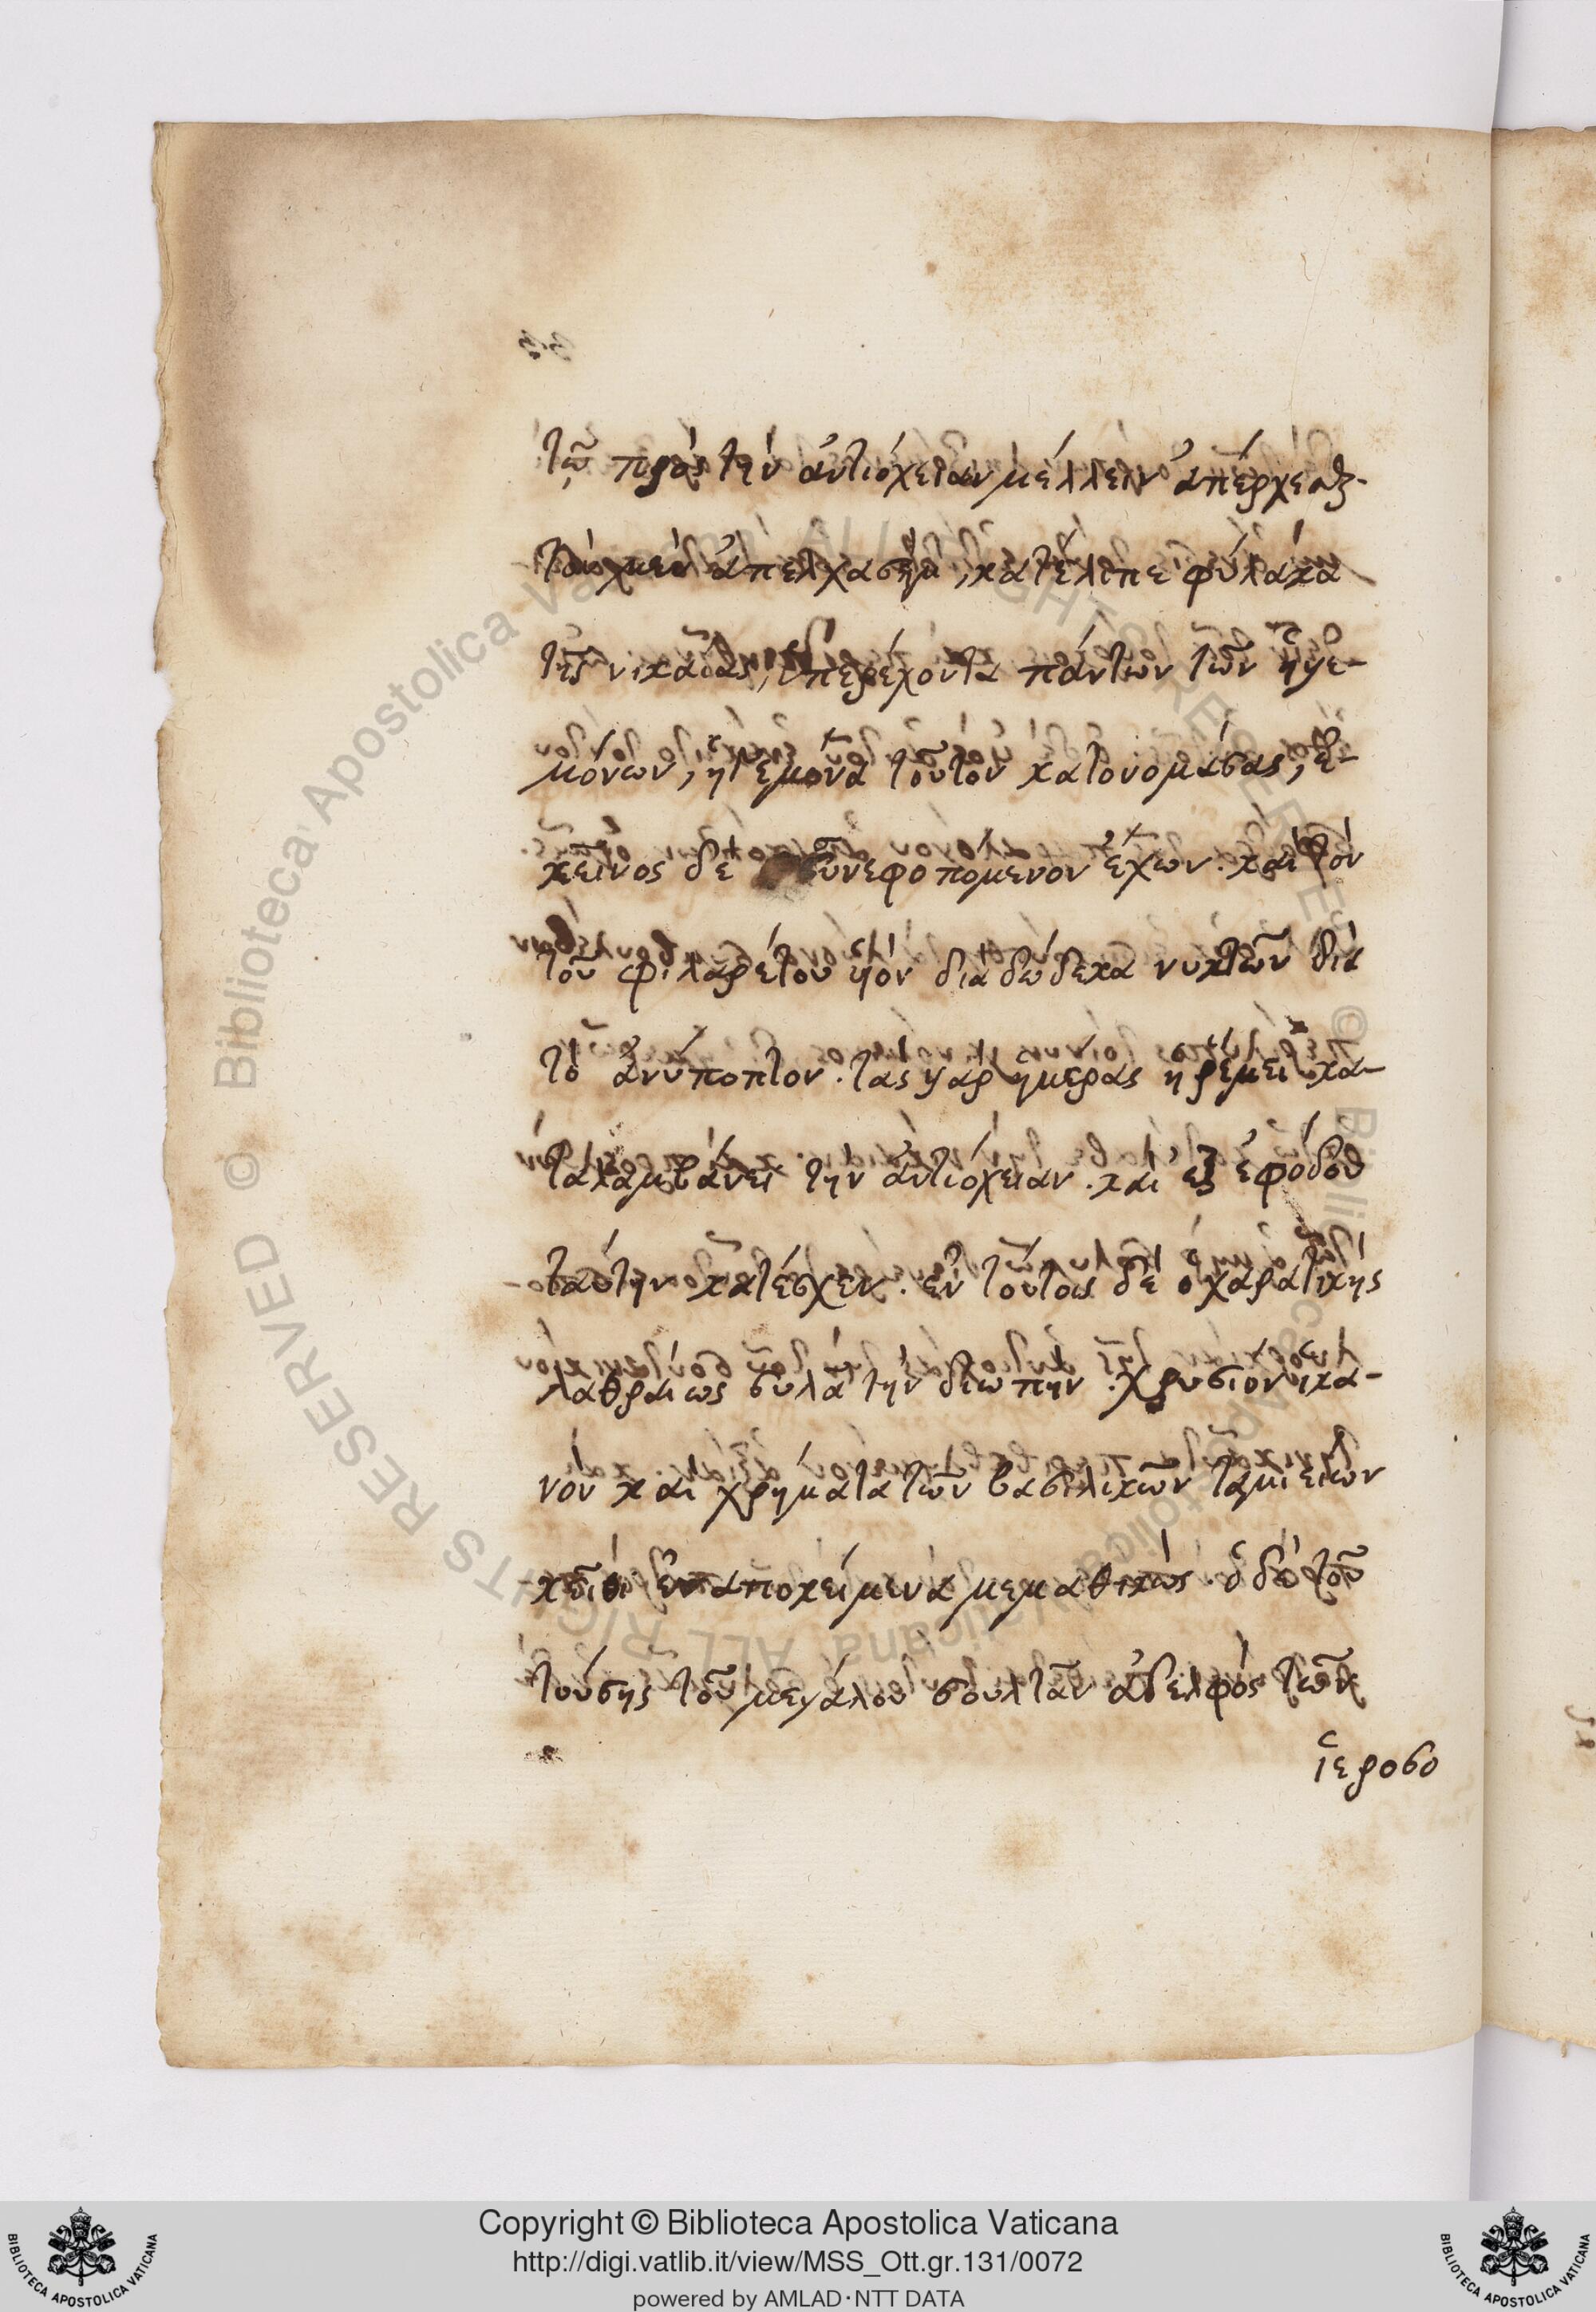 τῷ πρὸς τὴν ἀντιόχειαν μέλλειν ἀπέρχεσθαι.
τὸν μὲν ἀπελχασὴμ, κατέλιπε φύλακα
τῆς νικαίας, ὑπερέχοντα πάντων τῶν ἡγε-
μόνων, ἡγεμόνα τοῦτον κατονομάσας, ἐ-
κεῖνος δὲ συνεφοπόμενον ἔχων. καὶ τὸν
τοῦ φιλαρέτου ὑιὸν διὰ δώδεκα νυκτῶν διὰ
τὸ ἀνύποπτον. τὰς γὰρ ἡμέρας ἠρέμει κα-
ταλαμβάνει τὴν ἀντιόχειαν. καὶ ἐξ ἐφόδου
ταύτην κατέσχεν. ἐν τούτοις δὲ ὁ χαρατικὴς
λαθραίως συλᾶ τὴν σινώπην. χρυσίον ἱκα-
νὸν καὶ χρήματα τῶν βασιλικῶν ταμιείων
κεῖθι ἐναποκείμενα μεμαθηκώς. ὁ δὲ τοῦ
τούσης τοῦ μεγάλου σουλτὰν ἀδελφὸς τῶν
ἱεροσο
Copyright © Biblioteca Apostolica Vaticana
http://digi.vatlib.it/view/MSS_Ott.gr.131/0072
powered by AMLAD·NTT DATA
BIBLIOTECA APOSTOLICA VATICANA
BIBLIOTECA APOSTOLICA VATICANA
© Biblioteca Apostolica Vaticana ALL RIGHTS RESERVED